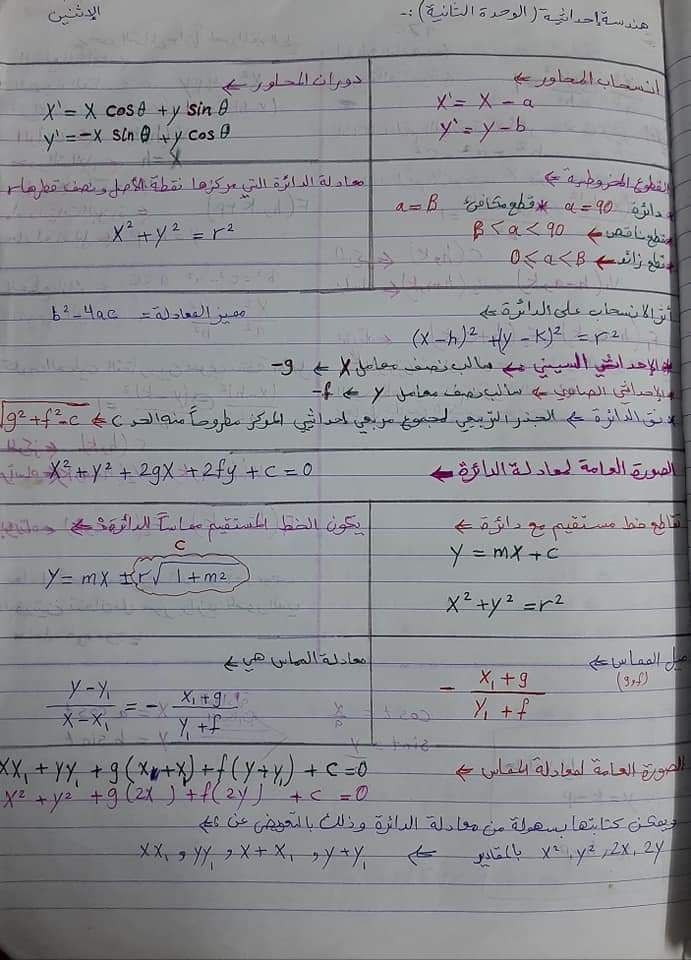 هندسة إحداثية (الوحدة الثانية) :-
الإثنين
انسحاب المحاور ⇐
X' = X - a
y' = y - b
دوران المحاور ⇐
X' = X cosθ + y sinθ
y' = -X sinθ + y cosθ
القطوع المخروطية ⇐
دائرة a = 90 * قطع مكافئ a = B
قطع ناقص ⇐ B < a < 90
قطع زائد ⇐ 0 ≤ a < B
معادلة الدائرة التي مركزها نقطة الأصل ونصف قطرها r
X² + y² = r²
أثر الانسحاب على الدائرة ⇐
مميز المعادلة = b² - 4ac
(x - h)² + (y - k)² = r²
الإحداثي السيني ⇐ سالب نصف معامل X ⇐ -g
الإحداثي الصادي ⇐ سالب نصف معامل y ⇐ -f
نق الدائرة ⇐ الجذر التربيعي لمجموع مربعي إحداثيي المركز مطروحاً منه الحد C ⇐ √g² + f² - c
الصورة العامة لمعادلة الدائرة ⇐ X² + y² + 2gX + 2fy + c = 0
تقاطع خط مستقيم مع دائرة ⇐
y = mx + c
X² + y² = r²
يكون الخط المستقيم مماساً للدائرة ⇐
C
y = mx ± r√1 + m²
ميل المماس ⇐
(g,f)
- X₁ + g / y₁ + f
معادلة المماس هي ⇐
y - y₁ / x - x₁ = - x₁ + g / y₁ + f
الصورة العامة لمعادلة المماس ⇐
XX₁ + yy₁ + g(x + x₁) + f(y + y₁) + c = 0
X² + y² + g(2x) + f(2y) + c = 0
ويمكن كتابتها بسهولة من معادلة الدائرة وذلك بالتعويض عن :
x², y², 2x, 2y بالمقادير ⇐ xx₁ و yy₁ و x + x₁ و y + y₁